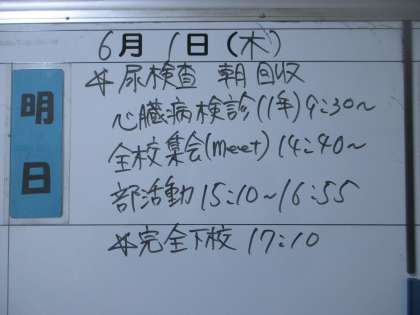 6月1日(木)
明日
☆尿検査 朝回収
心臓病検診(1年)9:30~
全校集会(meet)14:40~
部活動15:10~16:55
☆完全下校 17:10